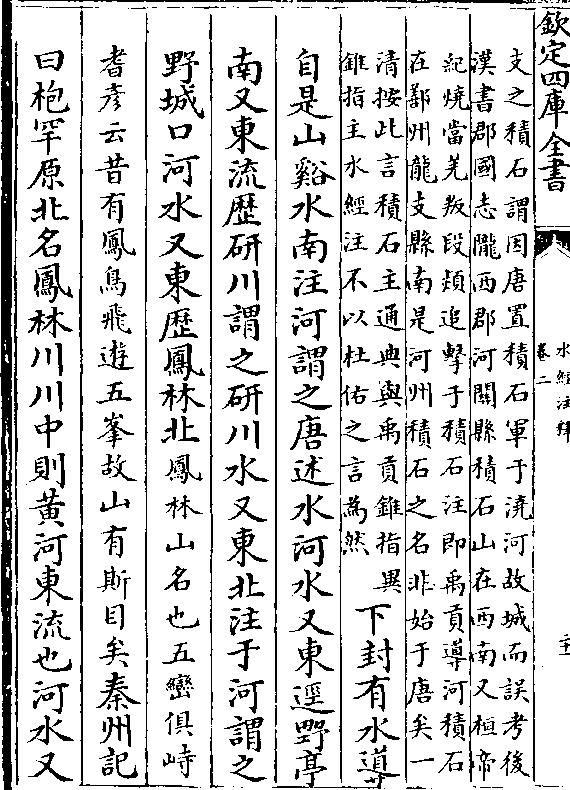 欽定四庫全書
水經注釋
卷二
二十
支之積石謂因唐置積石軍于澆河故城而誤考後
漢書郡國志隴西郡河關縣積石山在西南又桓帝
紀燒當羌叛段熲追擊于積石注即禹貢導河積石
在鄯州龍支縣南是河州積石之名非始于唐矣一
清按此言積石主通典與禹貢錐指異
錐指主水經注不以杜佑之言為然
下封有水導
自是山谿水南注河謂之唐述水河水又東逕野亭
南又東流歷研川謂之研川水又東北注于河謂之
野城口河水又東歷鳳林北鳳林山名也五巒俱峙
耆彥云昔有鳳鳥飛遊五峯故山有斯目矣秦州記
曰枹罕原北名鳳林川川中則黃河東流也河水又